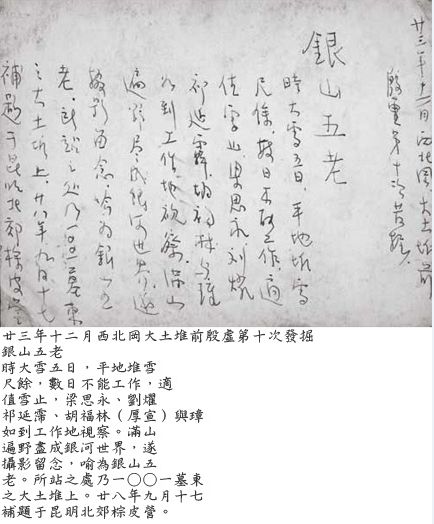 廿三年十二月西北岡大土堆前
殷虛第十次發掘
銀山五老
時大雪五日,平地堆雪
尺餘,數日不能工作,適
值雪止,梁思永劉燿
祁延霈胡福林與璋
如到工作地視察。滿山
遍野尽成銀河世界,遂
攝影留念,喻為銀山五
老。所站之處乃一〇〇一墓東
之大土堆上。廿八年九月十七
補題于昆明北郊棕皮營
廿三年十二月西北岡大土堆前殷虛第十次發掘
銀山五老
時大雪五日,平地堆雪
尺餘,數日不能工作,適
值雪止,梁思永、劉燿
祁延霈、胡福林(厚宣)與璋
如到工作地視察。滿山
遍野盡成銀河世界,遂
攝影留念,喻為銀山五
老。所站之處乃一〇〇一墓東
之大土堆上。廿八年九月十七
補題于昆明北郊棕皮營。